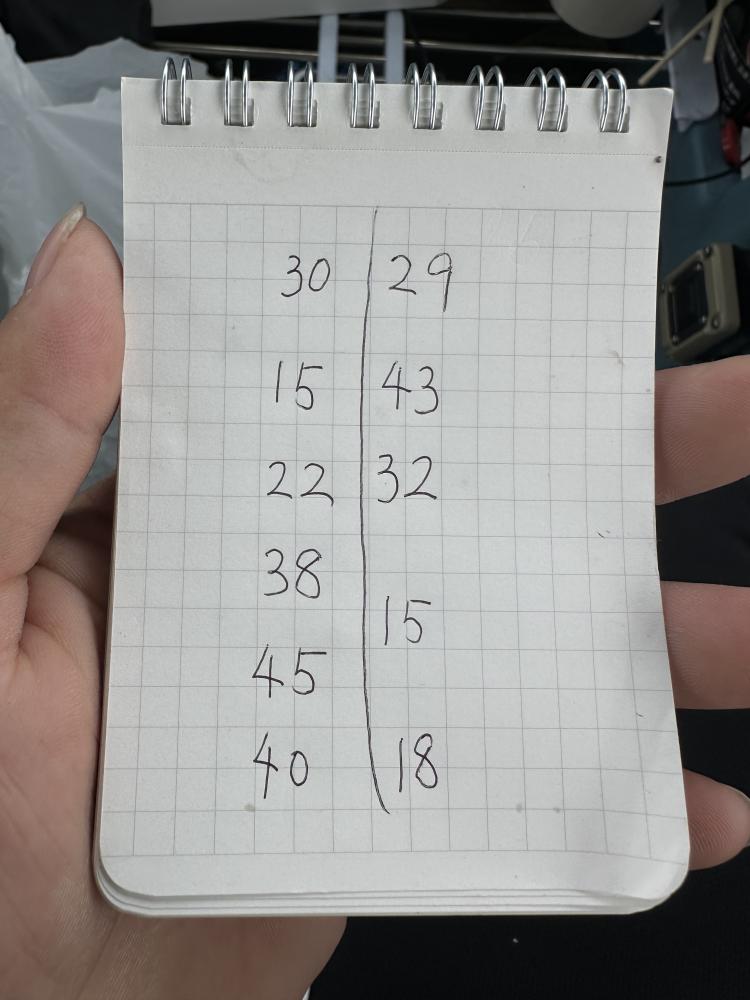 30 29
15 43
22 32
38
15
45
40 18